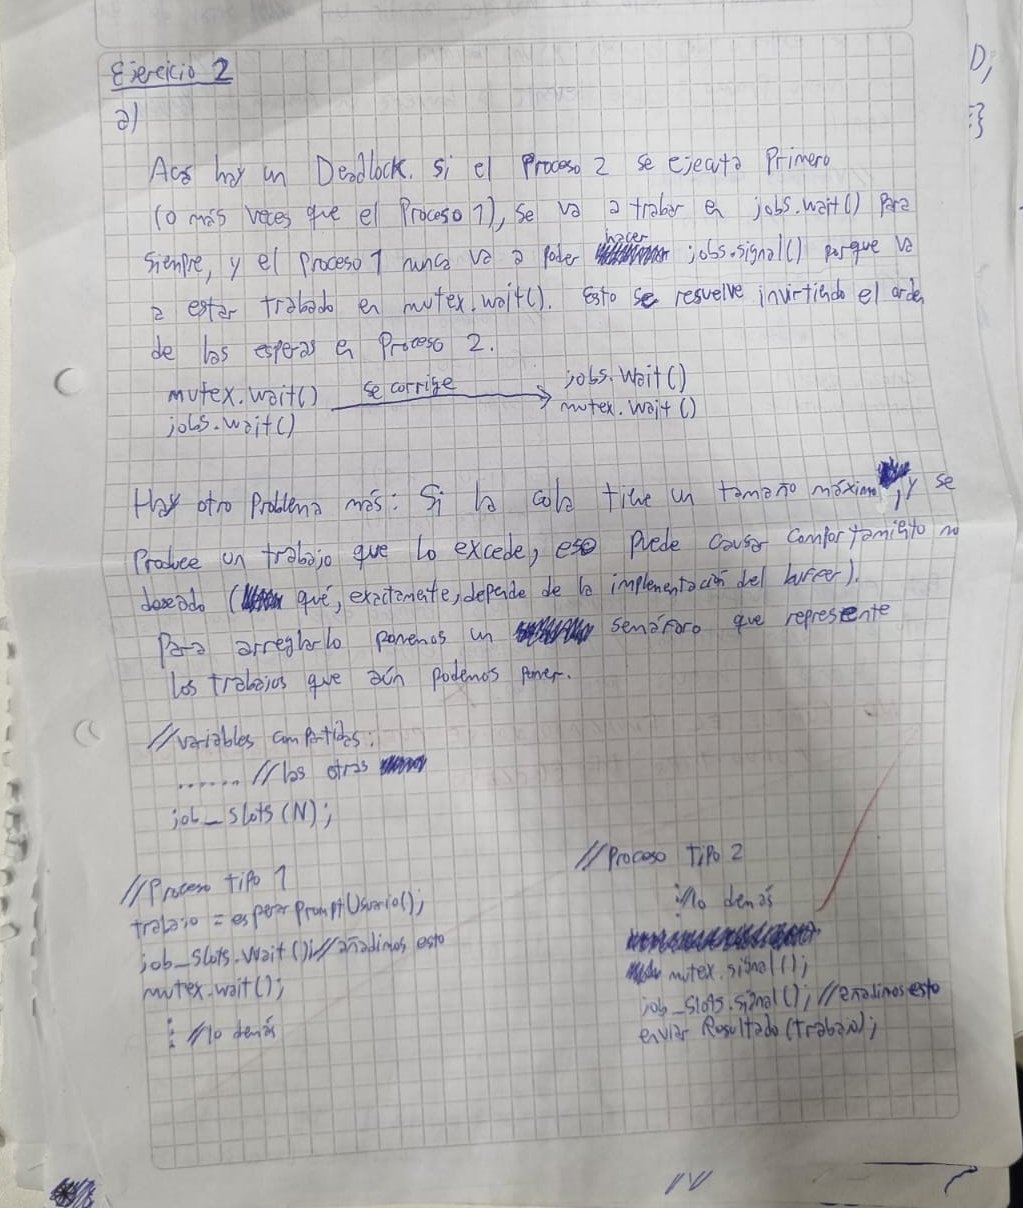 Ejercicio 2
a)
Acá hay un Deadlock. Si el Proceso 2 se ejecuta Primero
(o más veces que el Proceso 1), se va a trabar en jobs.wait() Para
siempre, y el Proceso 1 nunca va a poder hacer jobs.signal() porque va
a estar trabado en mutex.wait(). Esto se resuelve invirtiendo el orden
de las esperas en Proceso 2.
mutex.wait() se corrige jobs.wait()
jobs.wait() mutex.wait()
Hay otro Problema más: Si la cola tiene un tamaño máximo, y se
Produce un trabajo que lo excede, eso puede causar comportamiento no
deseado (qué, exactamente, depende de la implementación del buffer).
Para arreglarlo ponemos un semáforo que represente
los trabajos que aún podemos poner.
//variables compartidas:
....... //las otras
job_slots(N);
//Proceso Tipo 1
trabajo = esperarPromptUsuario();
job_slots.wait();//añadimos esto
mutex.wait();
⋮ //lo demás
//Proceso Tipo 2
⋮//lo demás
mutex.signal();
job_slots.signal(); //añadimos esto
enviarResultado(trabajo);
D;
}